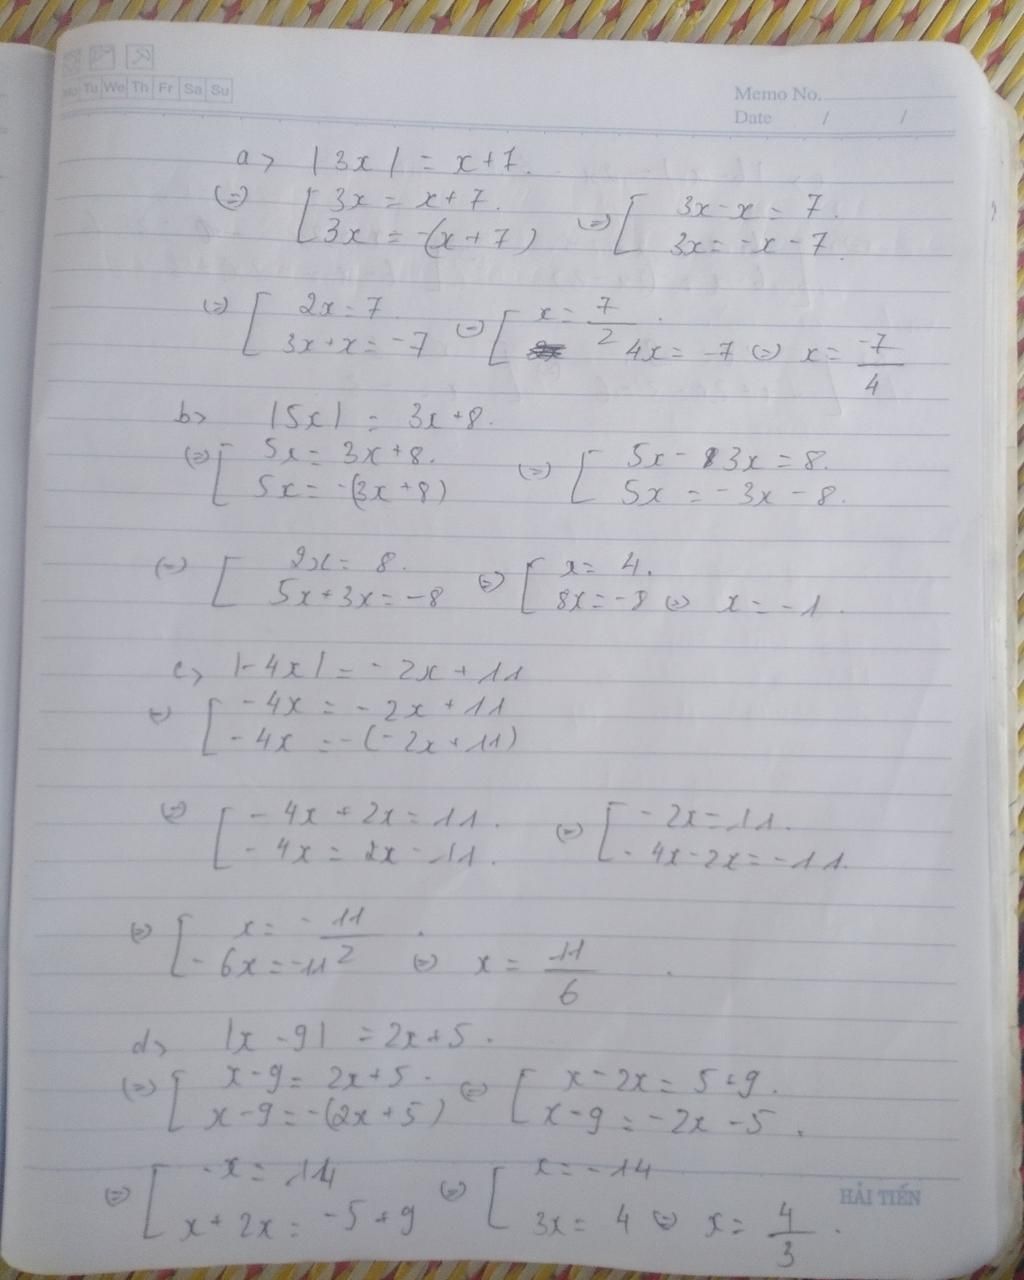 Mo Tu We Th Fr Sa Su
Memo No.
Date / /
a> |3x| = x+7.
(=) [ 3x = x+7. (=) [ 3x-x = 7.
3x = -(x+7) 3x = -x-7.
(=) [ 2x = 7 (=) [ x = 7/2.
3x+x = -7 4x = -7 (=) x = -7/4
b> |5x| = 3x+8.
(=) [ 5x = 3x+8. (=) [ 5x - 3x = 8.
5x = -(3x+8) 5x = -3x-8.
(=) [ 2x = 8. (=) [ x = 4.
5x+3x = -8 8x = -8 (=) x = -1.
c> |-4x| = -2x+11
(=) [ -4x = -2x+11
-4x = -(-2x+11)
(=) [ -4x+2x = 11. (=) [ -2x = 11.
-4x = 2x-11. -4x-2x = -11.
(=) [ x = -11/2.
-6x = -11 (=) x = 11/6.
d> |x-9| = 2x+5.
(=) [ x-9 = 2x+5. (=) [ x-2x = 5+9.
x-9 = -(2x+5) x-9 = -2x-5.
(=) [ -x = 14 (=) [ x = -14
x+2x = -5+9 3x = 4 (=) x = 4/3.
HẢI TIẾN